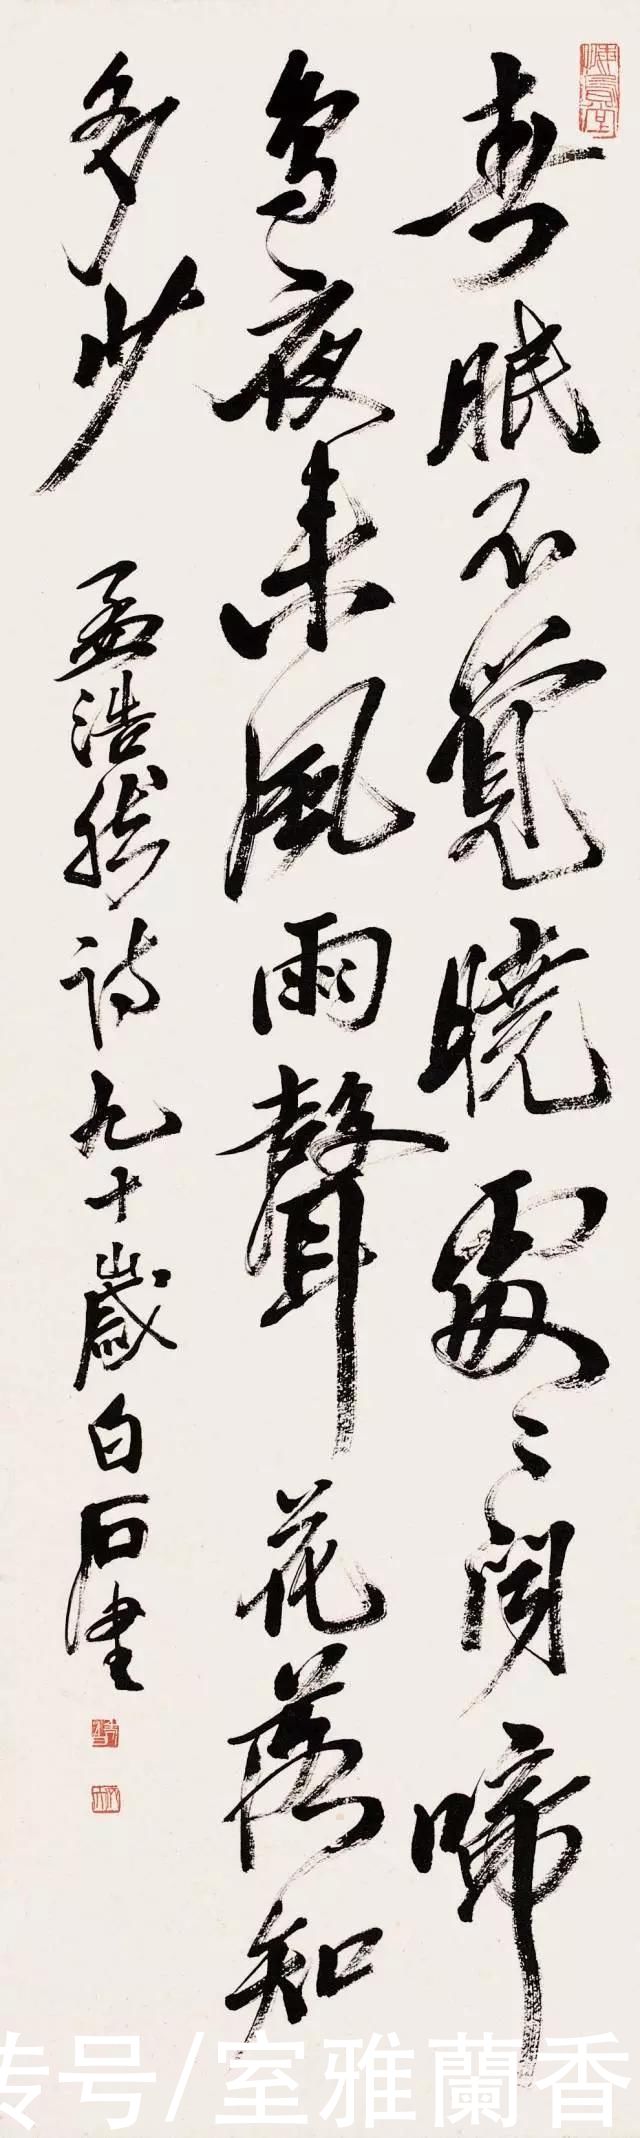 春眠不覺曉處〻聞啼
鳥夜来風雨聲花落知
多少
孟浩然诗九十歲白石書
转号/室雅蘭香